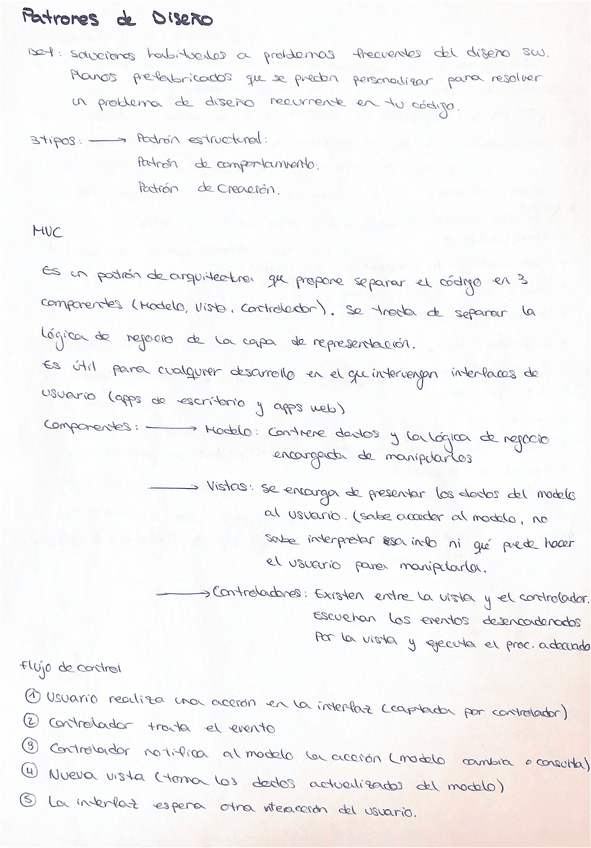 Patrones de Diseño
Def: soluciones habituales a problemas frecuentes del diseño sw.
Planos prefabricados que se pueden personalizar para resolver
un problema de diseño recurrente en tu código.
3 tipos: → Patrón estructural:
Patrón de comportamiento.
Patrón de Creación.
MVC
Es un patrón de arquitectura que propone separar el código en 3
componentes (Modelo, Vista, Controlador). Se trata de separar la
lógica de negocio de la capa de representación.
Es útil para cualquier desarrollo en el que intervengan interfaces de
usuario (apps de escritorio y apps web)
Componentes: → Modelo: Contiene dactos y la lógica de negocio
encargada de manipularlos
→ Vistas: Se encarga de presentar los datos del modelo
al usuario. (sabe acceder al modelo, no
sabe interpretar esa info ni qué puede hacer
el usuario para manipularla.
→ Controladores: Existen entre la vista y el controlador.
Escuchan los eventos desencadenados
por la vista y ejecuta el proc. adecuado
Flujo de control
① Usuario realiza una acción en la interfaz (captada por controlador)
② Controlador trata el evento
③ Controlador notifica al modelo la acción (modelo cambia o consulta)
④ Nueva vista (toma los datos actualizados del modelo)
⑤ La interfaz espera otra interacción del usuario.